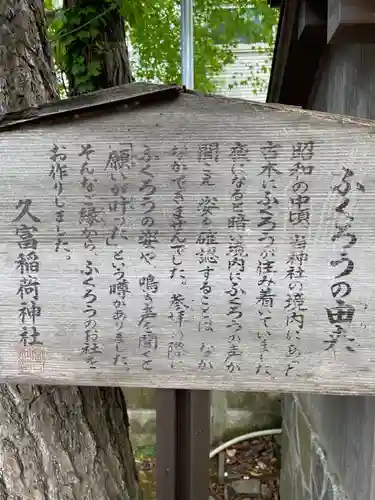 ふくろうの由来
昭和の中頃、当神社の境内にあった
古木にふくろうが住み着いていました。
夜になると暗い境内にふくろうの声が
聞こえ 姿を確認することは なか
なかできませんでした。参拝の際に
ふくろうの姿や 鳴き声を聞くと
「願いが叶った」という噂がありました。
そんなご縁から ふくろうのお社を
お作りしました。
久富稲荷神社